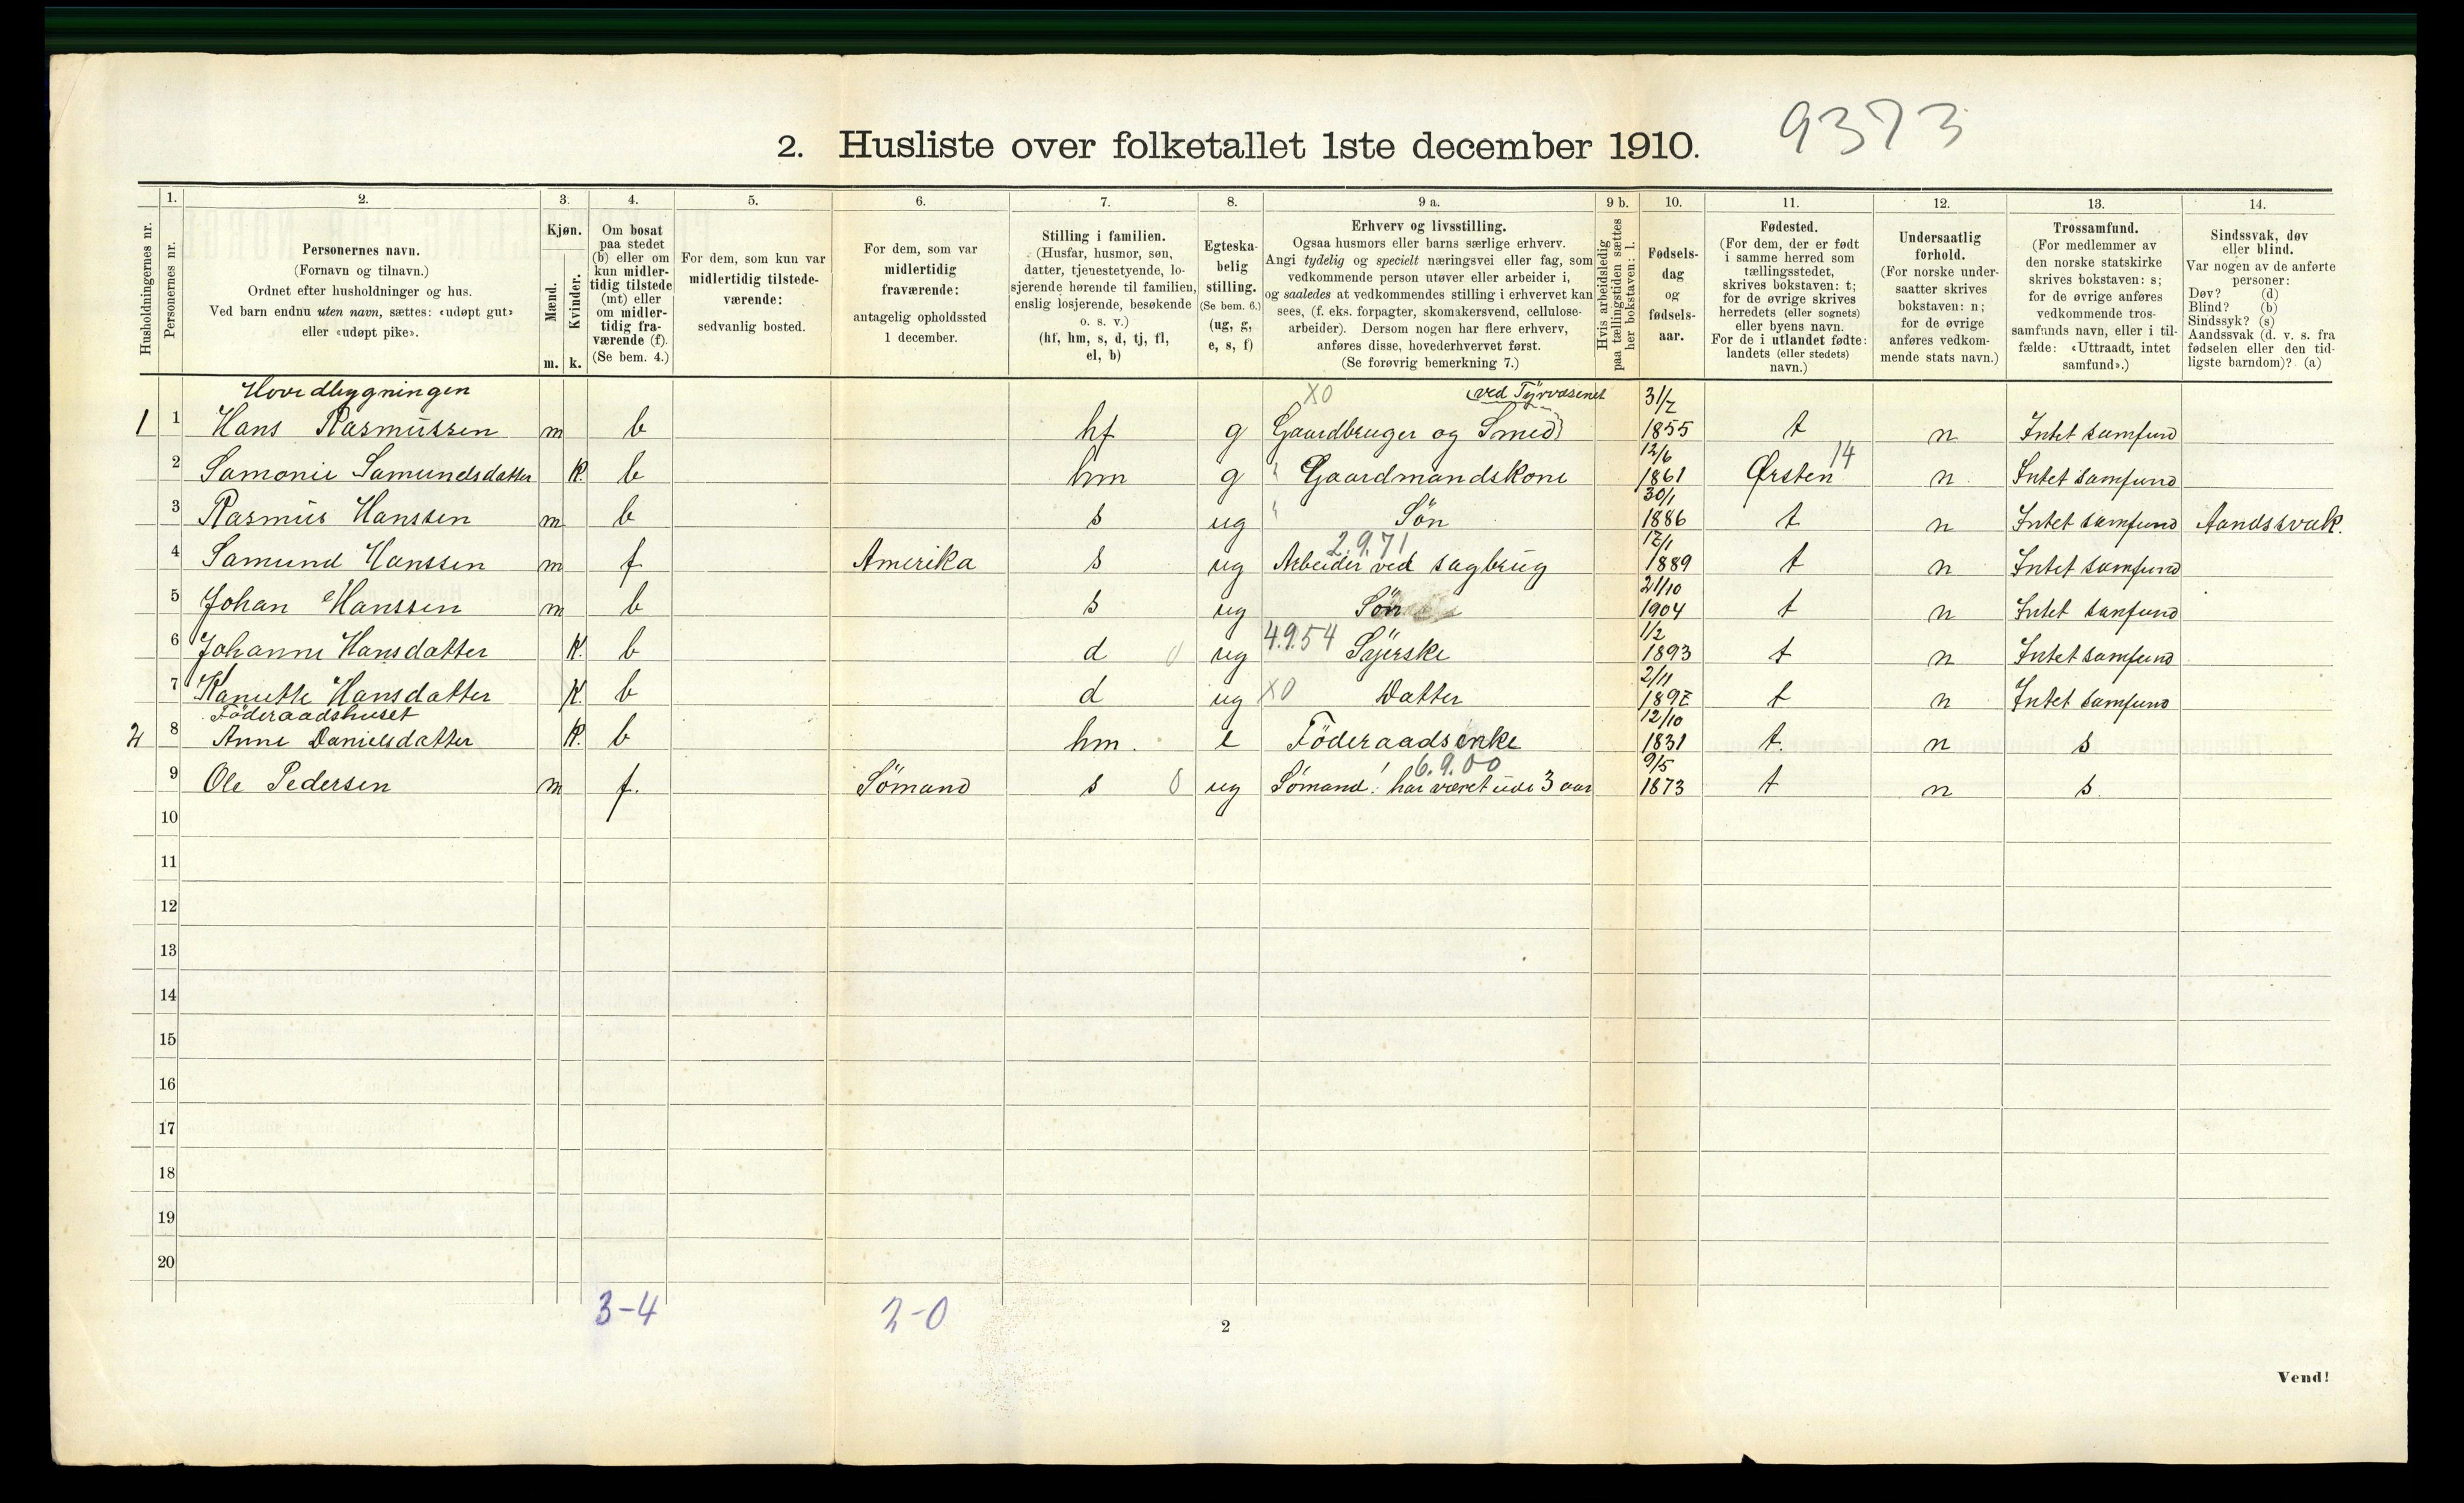 9373
2. Husliste over folketallet 1ste december 1910.
Husholdningernes nr.
1. Personernes nr.
2. Personernes navn.
(Fornavn og tilnavn.)
Ordnet efter husholdninger og hus.
Ved barn endnu uten navn, sættes: «udøpt gut»
eller «udøpt pike».
3. Kjøn.
Mænd. m.
Kvinder. k.
4. Om bosat
paa stedet
(b) eller om
kun midler-
tidig tilstede
(mt) eller
om midler-
tidig fra-
værende (f).
(Se bem. 4.)
5. For dem, som kun var
midlertidig tilstede-
værende:
sedvanlig bosted.
6. For dem, som var
midlertidig
fraværende:
antagelig opholdssted
1 december.
7. Stilling i familien.
(Husfar, husmor, søn,
datter, tjenestetyende, lo-
sjerende hørende til familien,
enslig losjerende, besøkende
o. s. v.)
(hf, hm, s, d, tj, fl,
el, b)
8. Egteska-
belig
stilling.
(Se bem. 6.)
(ug, g,
e, s, f)
9 a. Erhverv og livsstilling.
Ogsaa husmors eller barns særlige erhverv.
Angi tydelig og specielt næringsvei eller fag, som
vedkommende person utøver eller arbeider i,
og saaledes at vedkommendes stilling i erhvervet kan
sees, (f. eks. forpagter, skomakersvend, cellulose-
arbeider). Dersom nogen har flere erhverv,
anføres disse, hovederhvervet først.
(Se forøvrig bemerkning 7.)
9 b. Hvis arbeidsledig
paa tællingstiden sættes
her bokstaven: l.
10. Fødsels-
dag
og
fødsels-
aar.
11. Fødested.
(For dem, der er født
i samme herred som
tællingsstedet,
skrives bokstaven: t;
for de øvrige skrives
herredets (eller sognets)
eller byens navn.
For de i utlandet fødte:
landets (eller stedets)
navn.)
12. Undersaatlig
forhold.
(For norske under-
saatter skrives
bokstaven: n;
for de øvrige
anføres vedkom-
mende stats navn.)
13. Trossamfund.
(For medlemmer av
den norske statskirke
skrives bokstaven: s;
for de øvrige anføres
vedkommende tros-
samfunds navn, eller i til-
fælde: «Uttraadt, intet
samfund».)
14. Sindssvak, døv
eller blind.
Var nogen av de anførte
personer:
Døv? (d)
Blind? (b)
Sindssyk? (s)
Aandssvak (d. v. s. fra
fødselen eller den tid-
ligste barndom)? (a)
Hovedbygningen X0 31/7
1 1 Hans Rasmussen m b hf g Gaardbruger og Smed 1855 t n Intet samfund
12/6 14
2 Samonie Samundsdatter K. b hm g " Gaardmandskone 1861 Ørsten n Intet samfund
30/1
3 Rasmus Hanssen m b s ug " Søn 1886 t n Intet samfund Aandssvak.
2.9.71 17/1
4 Samund Hanssen m f Amerika s ug Arbeider ved sagbrug 1889 t n Intet samfund
21/10
5 Johan Hanssen m b s ug Søn 1904 t n Intet samfund
4.9.54 1/2
6 Johanne Hansdatter K. b d 0 ug Syerske 1893 t n Intet samfund
2/11
7 Kanutte Hansdatter K. b d ug X0 Datter 1897 t n Intet samfund
Föderaadshuset 12/10
2 8 Anne Danielsdatter K. b hm. e Föderaadsenke 1831 t. n s
6.9.00 9/5
9 Ole Pedersen m f. Sömand s 0 ug Sömand! har været ude 3 aar 1873 t n s
10
11
12
13
14
15
16
17
18
19
20
3-4 2-0
2
Vend!